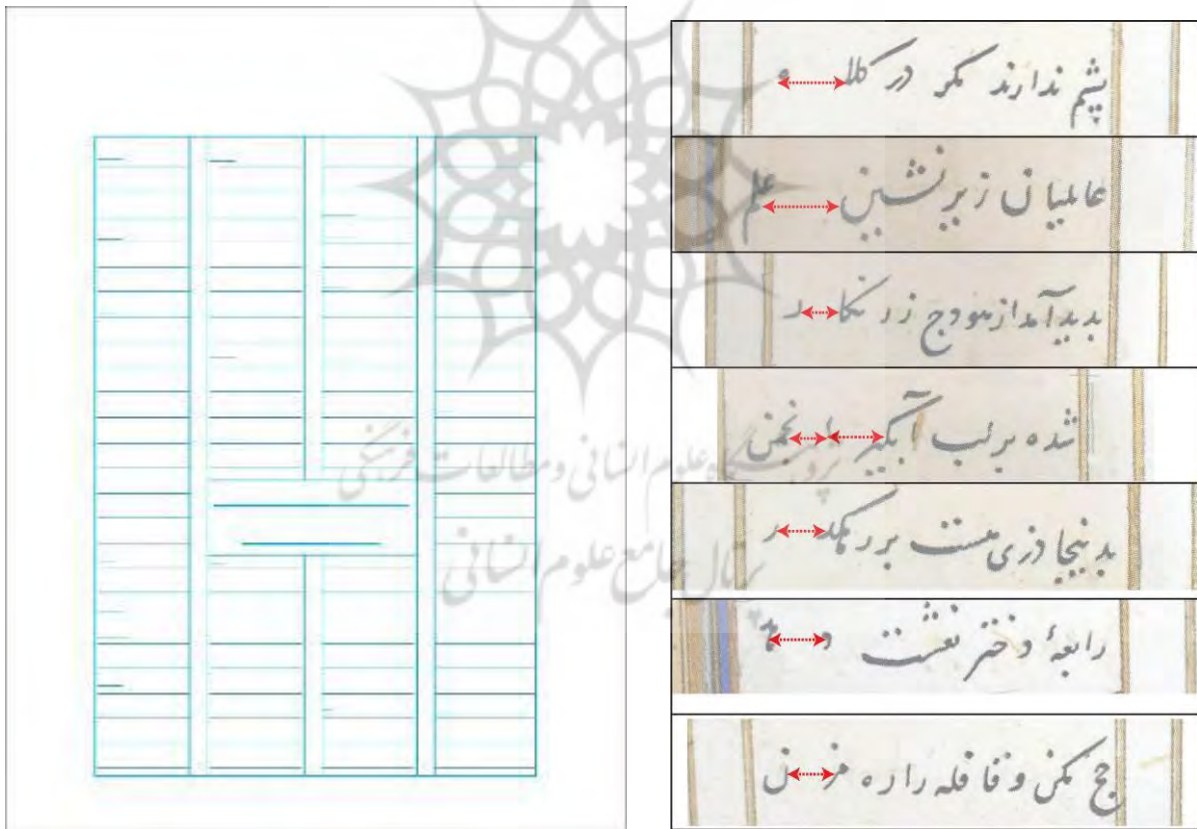 پشم ندارند مکر در کلا ه
عالمیان زیر نشین علم
بدید آمد از هودج زر نکا ر
شده بر لب آبگیر انجمن
بدینجا دزی هست بر
رابعهٔ دختر نعشت و
حج مکن و قافله را ره مزن
پژوهشگاه علوم انسانی و مطالعات فرهنگی
پرتال جامع علوم انسانی